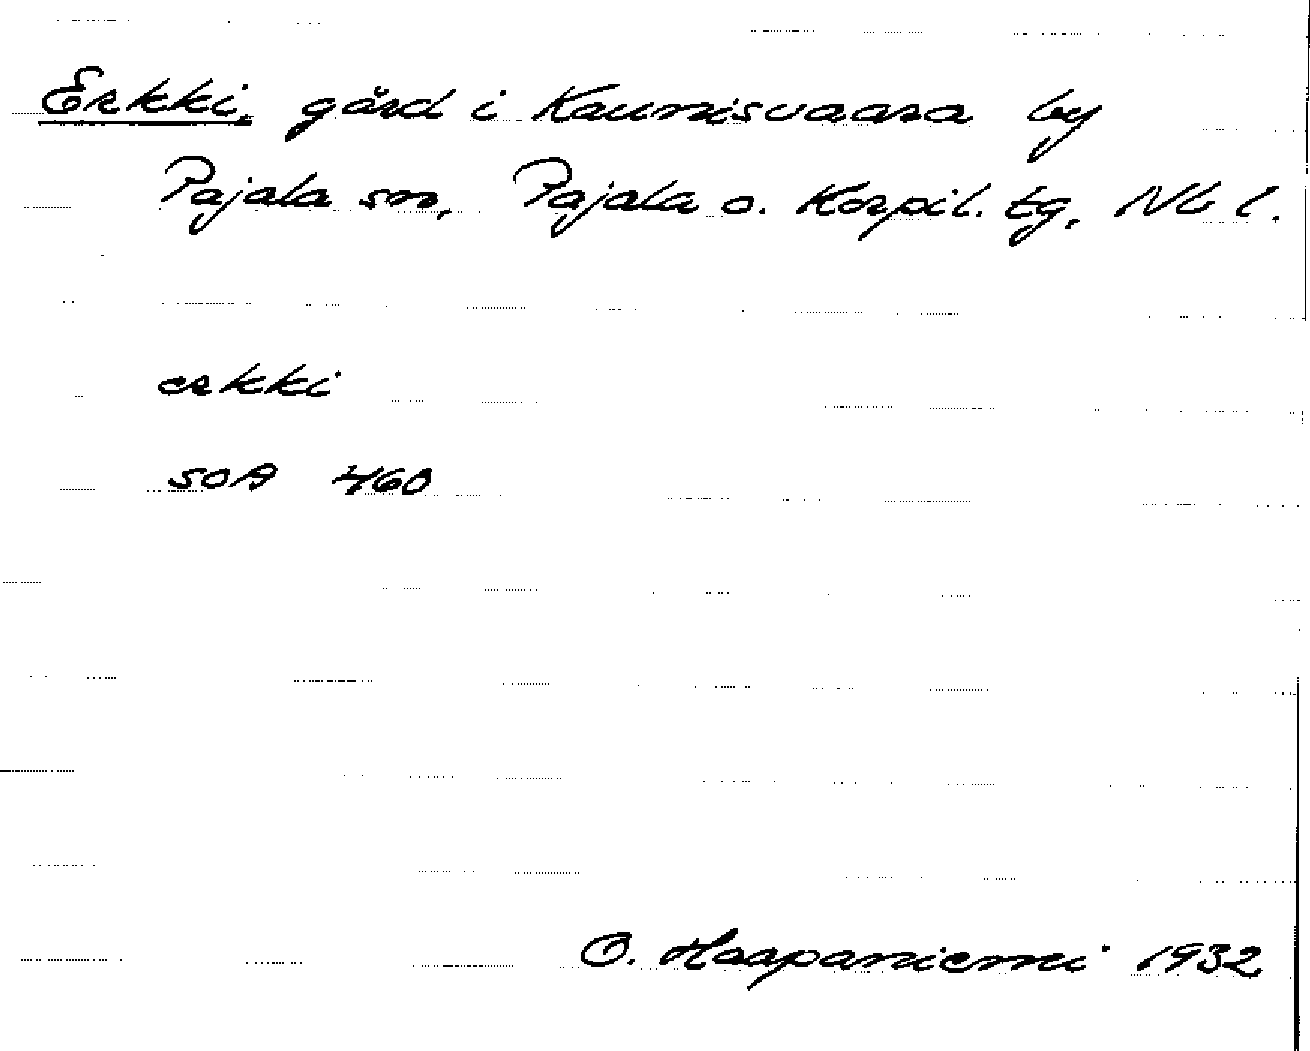 Erkki, gård i Kaunisvaara by
Pajala sn, Pajala o. Korpil. tg, Nb l.
erkki
SOA 460
O. Haapaniemi 1932